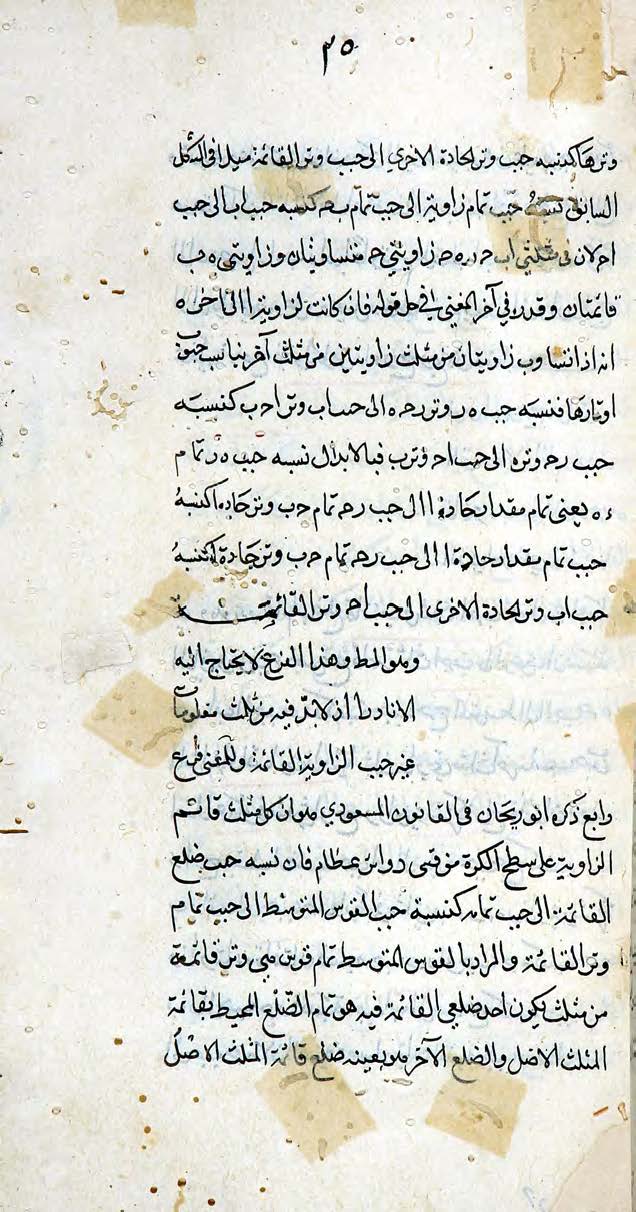 ٣٥
وترها كنسبه جيب وتر الحادة الاخري الى جيب وتر القائمة مثلا في الشكل
السابق نسبة جيب تمام زاوية ا الى جيب تمام ب ح كنسبه جيب اب الى جيب
ا ح لان في مثلثي اب ح زاويتي ح متساويتان وزاويتي ه ب
قائمتان وقد في آخر المغني في حل قوله فان كانت لزاوية ا الى اخره
انه اذا تساوت زاويتان من مثلث زاويتين من مثلث آخر يتناسب جيوب
اوتارها فنسبة جيب ه ر وتر ر ح ه الى جيب اب وتر ا ح ب كنسبة
جيب ر ح وتر ه الى جيب ا ح وتر ب فبالابدال نسبه جيب ه ر تمام
ء ه يعني تمام مقدار حادة ا الى جيب ر ح تمام ح ب وتر حادة ا كنسبة
جيب تمام مقدار حادة ا الى جيب ر ح تمام ح ب وتر حادة ا كنسبة
جيب اب وتر الحادة الاخرى الى جيب ا ح وتر القائمة
وهو المط وهذا الفرع لا يحتاج اليه
الا نادرا اذ لابد فيه من ثلث معلومات
غير جيب الزاوية القائمة وللمغني فرع
رابع ذكره ابو ريحان في القانون المسعودي هو ان كل مثلث قائم
الزاوية على سطح الكرة من قسي دوائر عظام فان نسبه جيب ضلع
القائمة الى جيب تمامه كنسبة جيب القوس المتوسط الى جيب تمام
وتر القائمة والمراد بالقوس المتوسط تمام قوس هي وتر قائمة
من مثلث يكون احد ضلعي القائمة فيه هو تمام الضلع المحيط بقائمة
المثلث الاصل والضلع الآخر هو بعينه ضلع قائمة المثلث الاصل